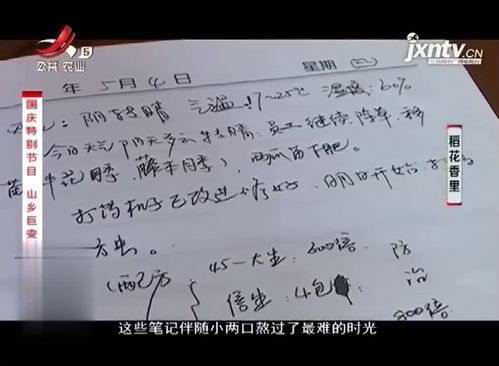 5
公共 农业
jxntv.CN
年 5月4日 星期(二)
阴转晴 气温:17~25℃ 湿度:60%
今日天气阴天多云转晴,员工继续除草,移
苗(半花月季,藤本月季),西瓜苗下肥。
打药机子已改进修好,明日开始打药
虫。
(配方
45-大生:600倍 防
信生:4包 治
600倍
国庆特别节目 山乡巨变
稻花香里
这些笔记伴随小两口熬过了最难的时光